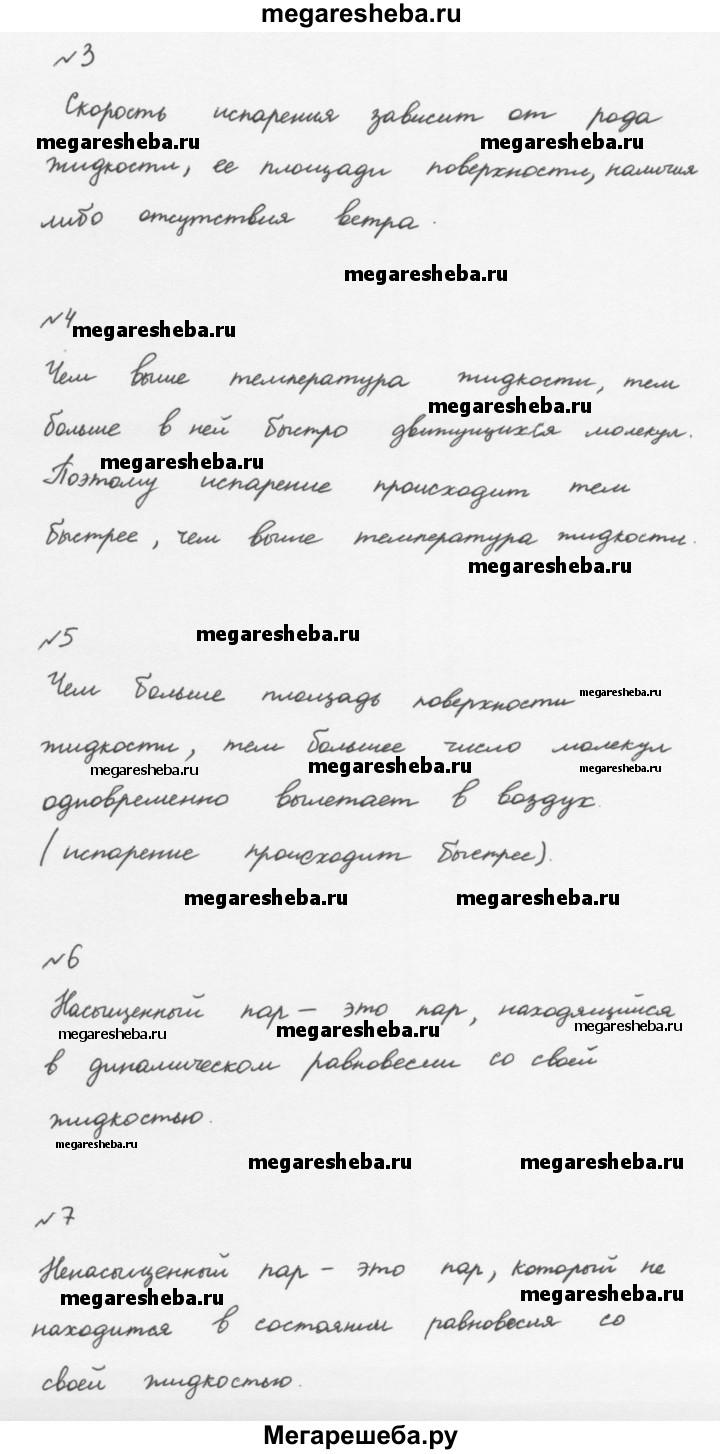 megaresheba.ru
№3
Скорость испарения зависит от рода
megaresheba.ru megaresheba.ru
жидкости, ее площади поверхности, наличия
либо отсутствия ветра.
megaresheba.ru
№4
megaresheba.ru
Чем выше температура жидкости, тем
megaresheba.ru
больше в ней быстро движущихся молекул.
megaresheba.ru
Поэтому испарение происходит тем
быстрее, чем выше температура жидкости.
megaresheba.ru
№5
megaresheba.ru
Чем больше площадь поверхности
megaresheba.ru
жидкости, тем большее число молекул
megaresheba.ru megaresheba.ru megaresheba.ru
одновременно вылетает в воздух.
(испарение происходит быстрее).
megaresheba.ru megaresheba.ru
№6
Насыщенный пар – это пар, находящийся
megaresheba.ru megaresheba.ru megaresheba.ru
в динамическом равновесии со своей
жидкостью.
megaresheba.ru
megaresheba.ru megaresheba.ru
№7
Ненасыщенный пар – это пар, который не
megaresheba.ru megaresheba.ru
находится в состоянии равновесия со
своей жидкостью.
Мегарешеба.ру